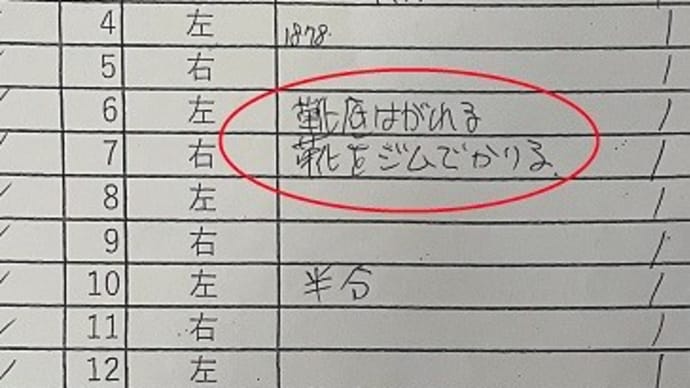 4 左 1878.
5 右
6 左 靴底はがれる
7 右 靴をジムでかりる.
8 左
9 右
10 左 半分
11 右
12 左